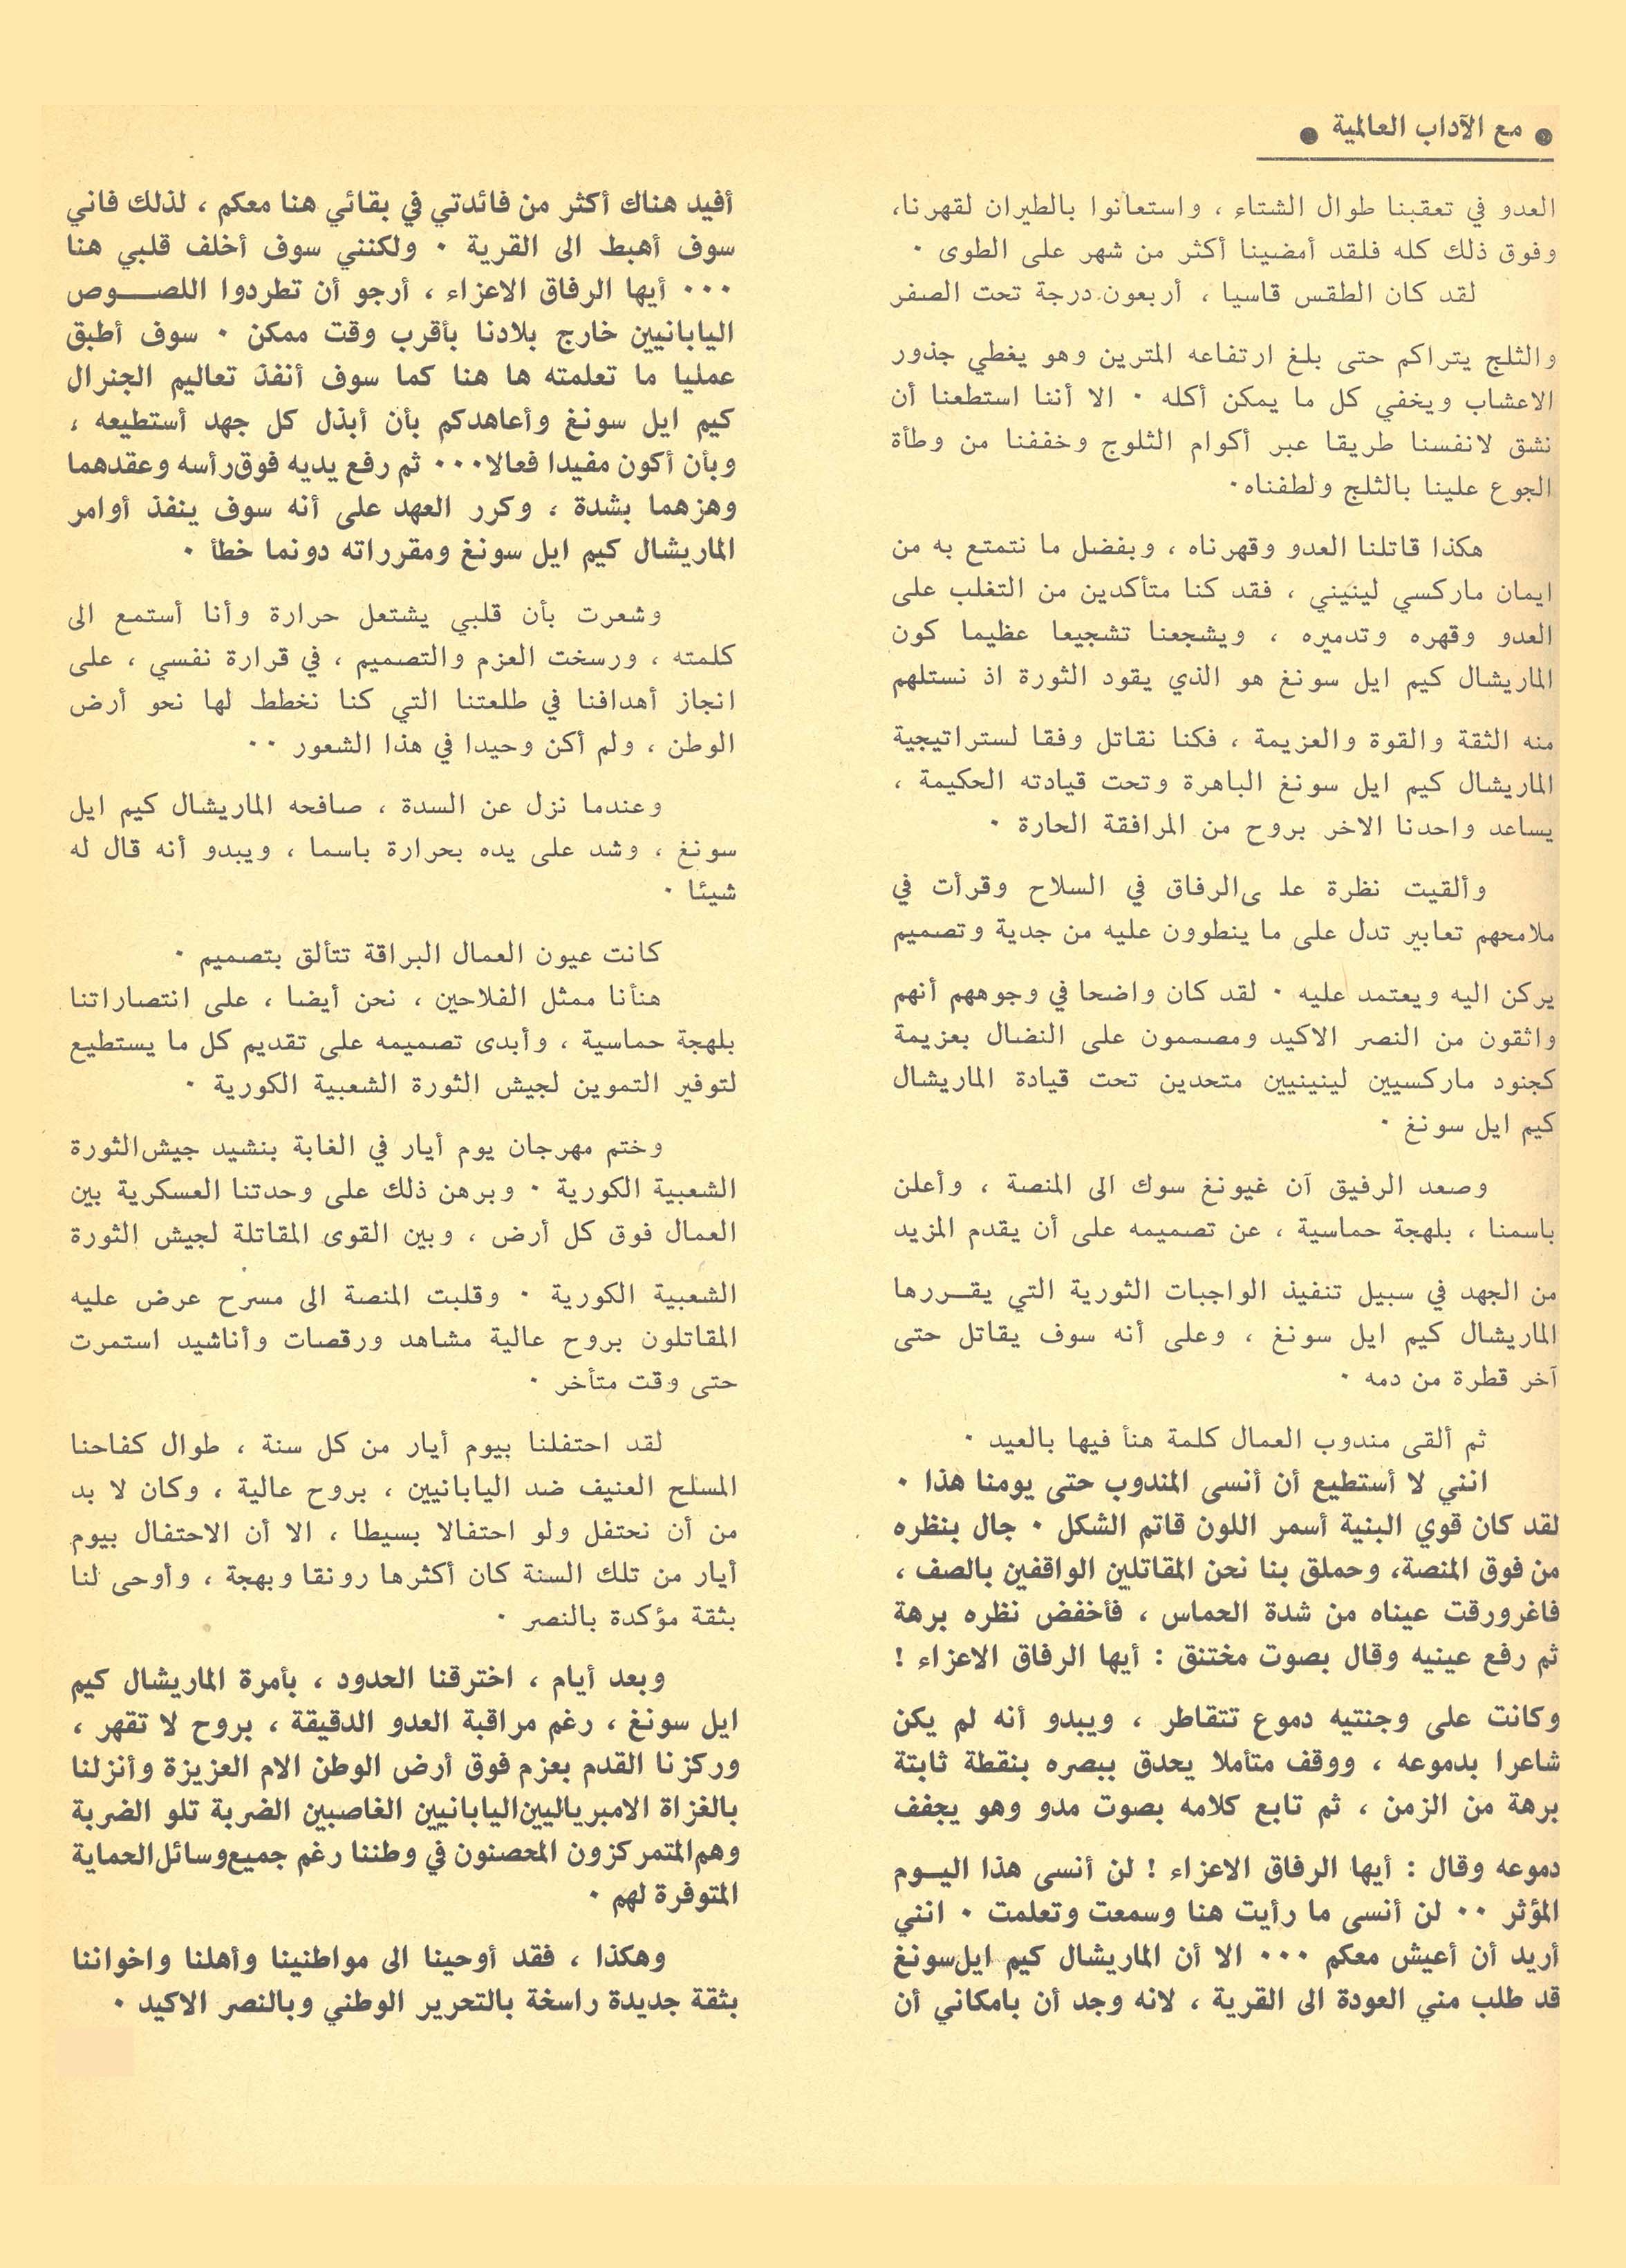 ● مع الآداب العالمية ●
العدو في تعقبنا طوال الشتاء ، واستعانوا بالطيران لقهرنا،
وفوق ذلك كله فلقد أمضينا أكثر من شهر على الطوى ٠
لقد كان الطقس قاسيا ، أربعون درجة تحت الصفر
والثلج يتراكم حتى بلغ ارتفاعه المترين وهو يغطي جذور
الاعشاب ويخفي كل ما يمكن أكله ٠ الا أننا استطعنا أن
نشق لانفسنا طريقا عبر أكوام الثلوج وخففنا من وطأة
الجوع علينا بالثلج ولطفناه٠
هكذا قاتلنا العدو وقهرناه ، وبفضل ما نتمتع به من
ايمان ماركسي لينيني ، فقد كنا متأكدين من التغلب على
العدو وقهره وتدميره ، ويشجعنا تشجيعا عظيما كون
الماريشال كيم ايل سونغ هو الذي يقود الثورة اذ نستلهم
منه الثقة والقوة والعزيمة ، فكنا نقاتل وفقا لستراتيجية
الماريشال كيم ايل سونغ الباهرة وتحت قيادته الحكيمة ،
يساعد واحدنا الاخر بروح من المرافقة الحارة ٠
وألقيت نظرة علـ ىالرفاق في السلاح وقرأت في
ملامحهم تعابير تدل على ما ينطوون عليه من جدية وتصميم
يركن اليه ويعتمد عليه ٠ لقد كان واضحا في وجوههم أنهم
واثقون من النصر الاكيد ومصممون على النضال بعزيمة
كجنود ماركسيين لينينيين متحدين تحت قيادة الماريشال
كيم ايل سونغ ٠
وصعد الرفيق آن غيونغ سوك الى المنصة ، وأعلن
باسمنا ، بلهجة حماسية ، عن تصميمه على أن يقدم المزيد
من الجهد في سبيل تنفيذ الواجبات الثورية التي يقـــررها
الماريشال كيم ايل سونغ ، وعلى أنه سوف يقاتل حتى
آخر قطرة من دمه ٠
ثم ألقى مندوب العمال كلمة هنأ فيها بالعيد ٠
انني لا أستطيع أن أنسى المندوب حتى يومنا هذا ٠
لقد كان قوي البنية أسمر اللون قاتم الشكل ٠ جال بنظره
من فوق المنصة، وحملق بنا نحن المقاتلين الواقفين بالصف ،
فاغرورقت عيناه من شدة الحماس ، فأخفض نظره برهة
ثم رفع عينيه وقال بصوت مختنق : أيها الرفاق الاعزاء !
وكانت على وجنتيه دموع تتقاطر ، ويبدو أنه لم يكن
شاعرا بدموعه ، ووقف متأملا يحدق ببصره بنقطة ثابتة
برهة من الزمن ، ثم تابع كلامه بصوت مدو وهو يجفف
دموعه وقال : أيها الرفاق الاعزاء ! لن أنسى هذا اليــوم
المؤثر ٠٠ لن أنسى ما رأيت هنا وسمعت وتعلمت ٠ انني
أريد أن أعيش معكم ٠٠٠ الا أن الماريشال كيم ايل سونغ
قد طلب مني العودة الى القرية ، لانه وجد أن بامكاني أن
أفيد هناك أكثر من فائدتي في بقائي هنا معكم ، لذلك فاني
سوف أهبط الى القرية ٠ ولكنني سوف أخلف قلبي هنا
٠٠٠ أيها الرفاق الاعزاء ، أرجو أن تطردوا اللصـــوص
اليابانيين خارج بلادنا بأقرب وقت ممكن ٠ سوف أطبق
عمليا ما تعلمته ها هنا كما سوف أنفذ تعاليم الجنرال
كيم ايل سونغ وأعاهدكم بأن أبذل كل جهد أستطيعه ،
وبأن أكون مفيدا فعالا٠٠٠ ثم رفع يديه فوق رأسه وعقدهما
وهزهما بشدة ، وكرر العهد على أنه سوف ينفذ أوامر
الماريشال كيم ايل سونغ ومقرراته دونما خطأ ٠
وشعرت بأن قلبي يشتعل حرارة وأنا أستمع الى
كلمته ، ورسخت العزم والتصميم ، في قرارة نفسي ، على
انجاز أهدافنا في طلعتنا التي كنا نخطط لها نحو أرض
الوطن ، ولم أكن وحيدا في هذا الشعور ٠٠
وعندما نزل عن السدة ، صافحه الماريشال كيم ايل
سونغ ، وشد على يده بحرارة باسما ، ويبدو أنه قال له
شيئا ٠
كانت عيون العمال البراقة تتألق بتصميم ٠
هنأنا ممثل الفلاحين ، نحن أيضا ، على انتصاراتنا
بلهجة حماسية ، وأبدى تصميمه على تقديم كل ما يستطيع
لتوفير التموين لجيش الثورة الشعبية الكورية ٠
وختم مهرجان يوم أيار في الغابة بنشيد جيش الثورة
الشعبية الكورية ٠ وبرهن ذلك على وحدتنا العسكرية بين
العمال فوق كل أرض ، وبين القوى المقاتلة لجيش الثورة
الشعبية الكورية ٠ وقلبت المنصة الى مسرح عرض عليه
المقاتلون بروح عالية مشاهد ورقصات وأناشيد استمرت
حتى وقت متأخر ٠
لقد احتفلنا بيوم أيار من كل سنة ، طوال كفاحنا
المسلح العنيف ضد اليابانيين ، بروح عالية ، وكان لا بد
من أن نحتفل ولو احتفالا بسيطا ، الا أن الاحتفال بيوم
أيار من تلك السنة كان أكثرها رونقا وبهجة ، وأوحى لنا
بثقة مؤكدة بالنصر ٠
وبعد أيام ، اخترقنا الحدود ، بأمرة الماريشال كيم
ايل سونغ ، رغم مراقبة العدو الدقيقة ، بروح لا تقهر ،
وركزنا القدم بعزم فوق أرض الوطن الام العزيزة وأنزلنا
بالغزاة الامبرياليين اليابانيين الغاصبين الضربة تلو الضربة
وهم المتمركزون المحصنون في وطننا رغم جميع وسائل الحماية
المتوفرة لهم ٠
وهكذا ، فقد أوحينا الى مواطنينا وأهلنا واخواننا
بثقة جديدة راسخة بالتحرير الوطني وبالنصر الاكيد ٠